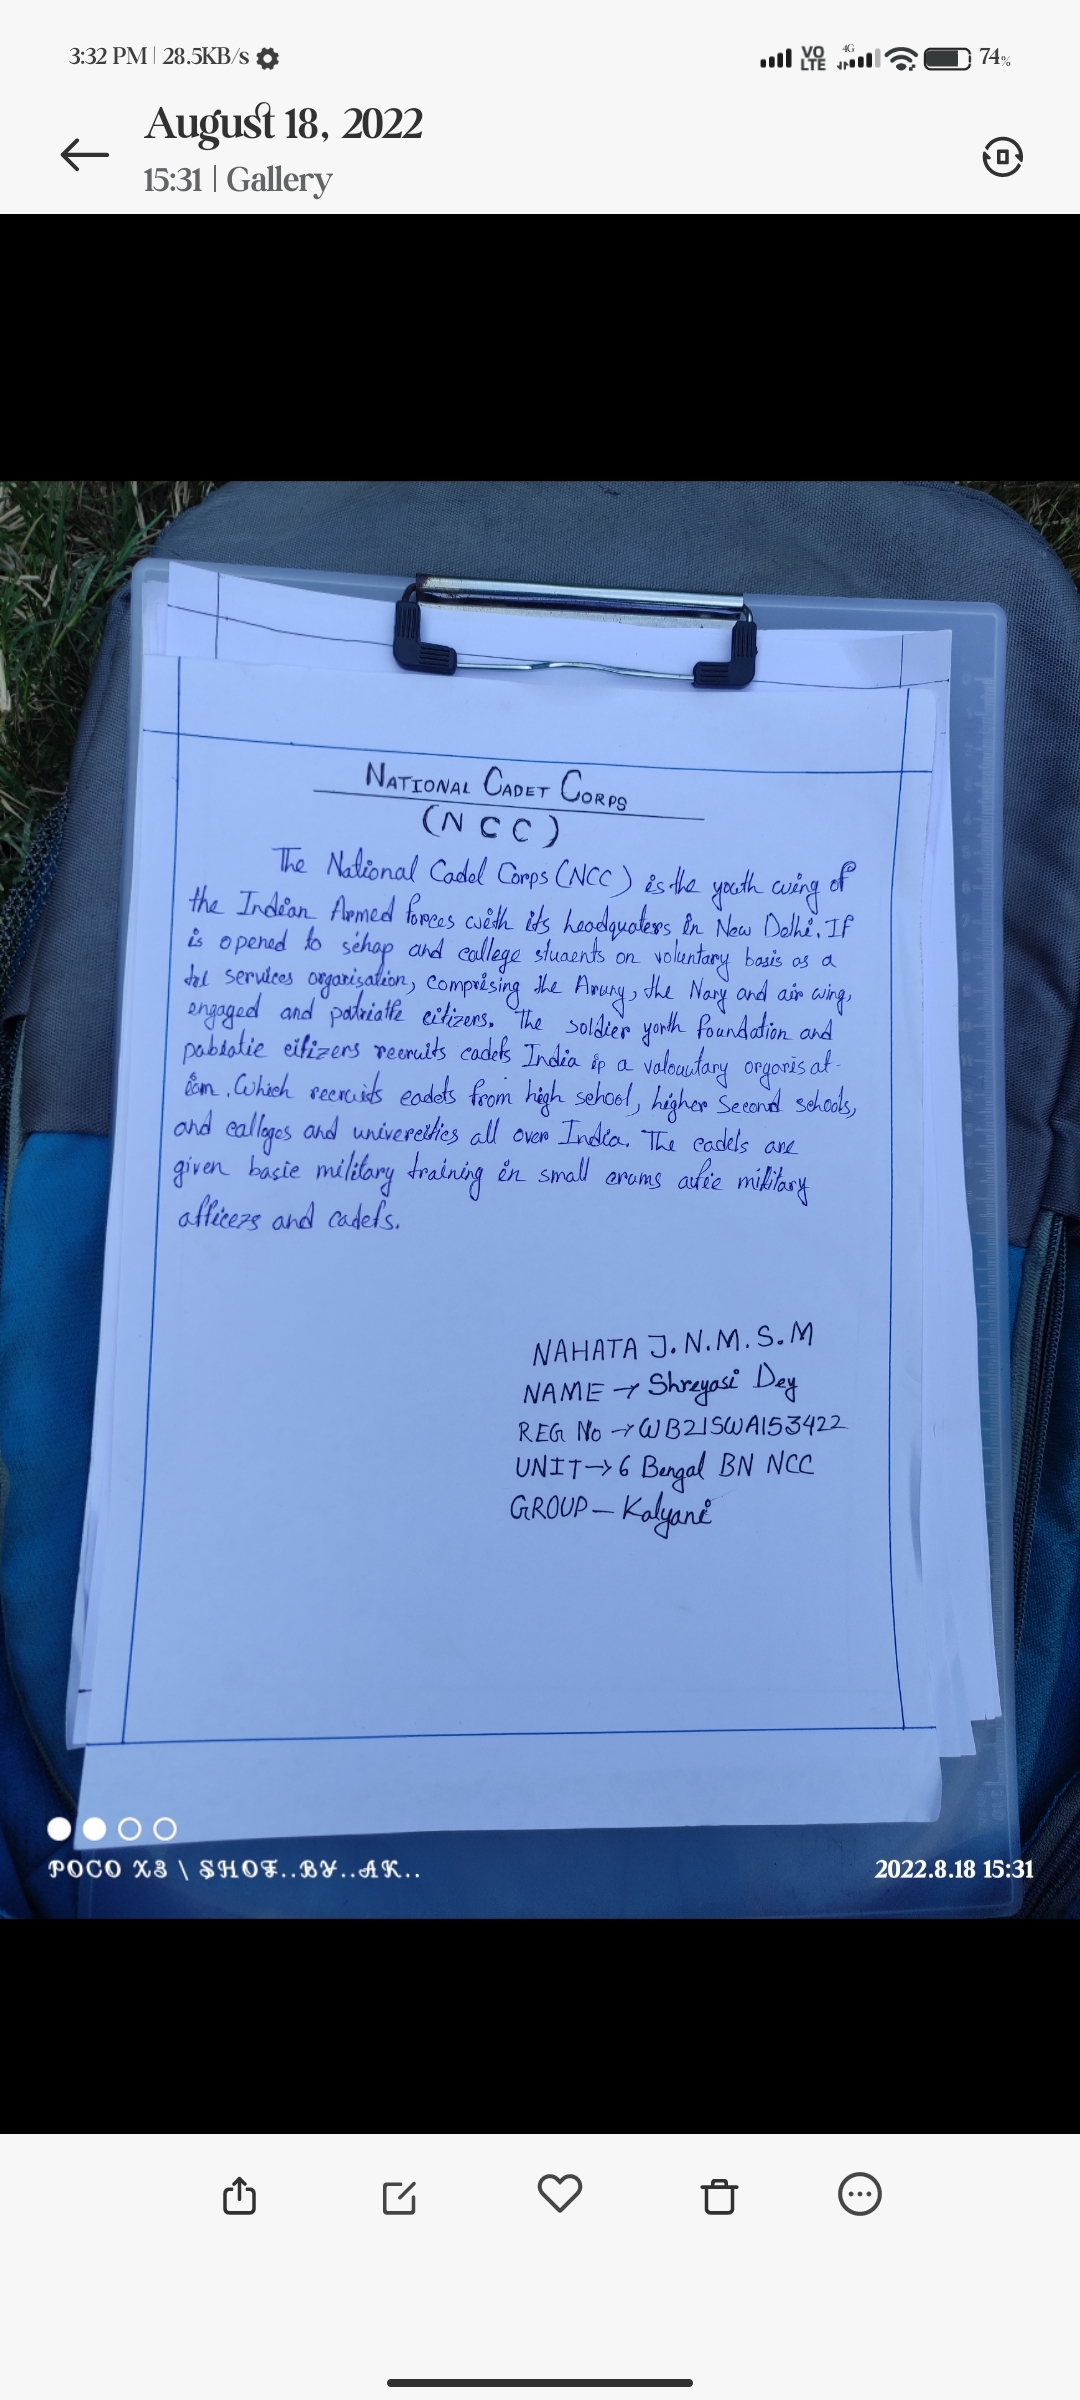 3:32 PM | 28.5KB/s
VO LTE 4G 74%
August 18, 2022
15:31 | Gallery
NATIONAL CADET CORPS
(NCC)
The National Cadel Corps (NCC) is the youth wing of
the Indian Armed forces with its headquaters in New Delhi. If
is opened to sehap and callege stuaents on voluntary basis as a
services organisation, comprising the Arauy, the Nary and air wing,
engaged and patriatfe citizens. The soldier yorth foundation and
pabiatie eifizers recruits cadefs India ip a valouutary orgonisat-
iom. Which recruists eadets from high sehool, higher Second schools,
and calloges and univereities all over India. The cadels are
given basie military training in small arams afie military
afficers and cadefs.
NAHATA J.N.M.S.M
NAME → Shreyasi Dey
REG No → WB21SWA153422
UNIT → 6 Bengal BN NCC
GROUP – Kalyani
POCO X3 \ SHOT..BY..AK..
2022.8.18 15:31